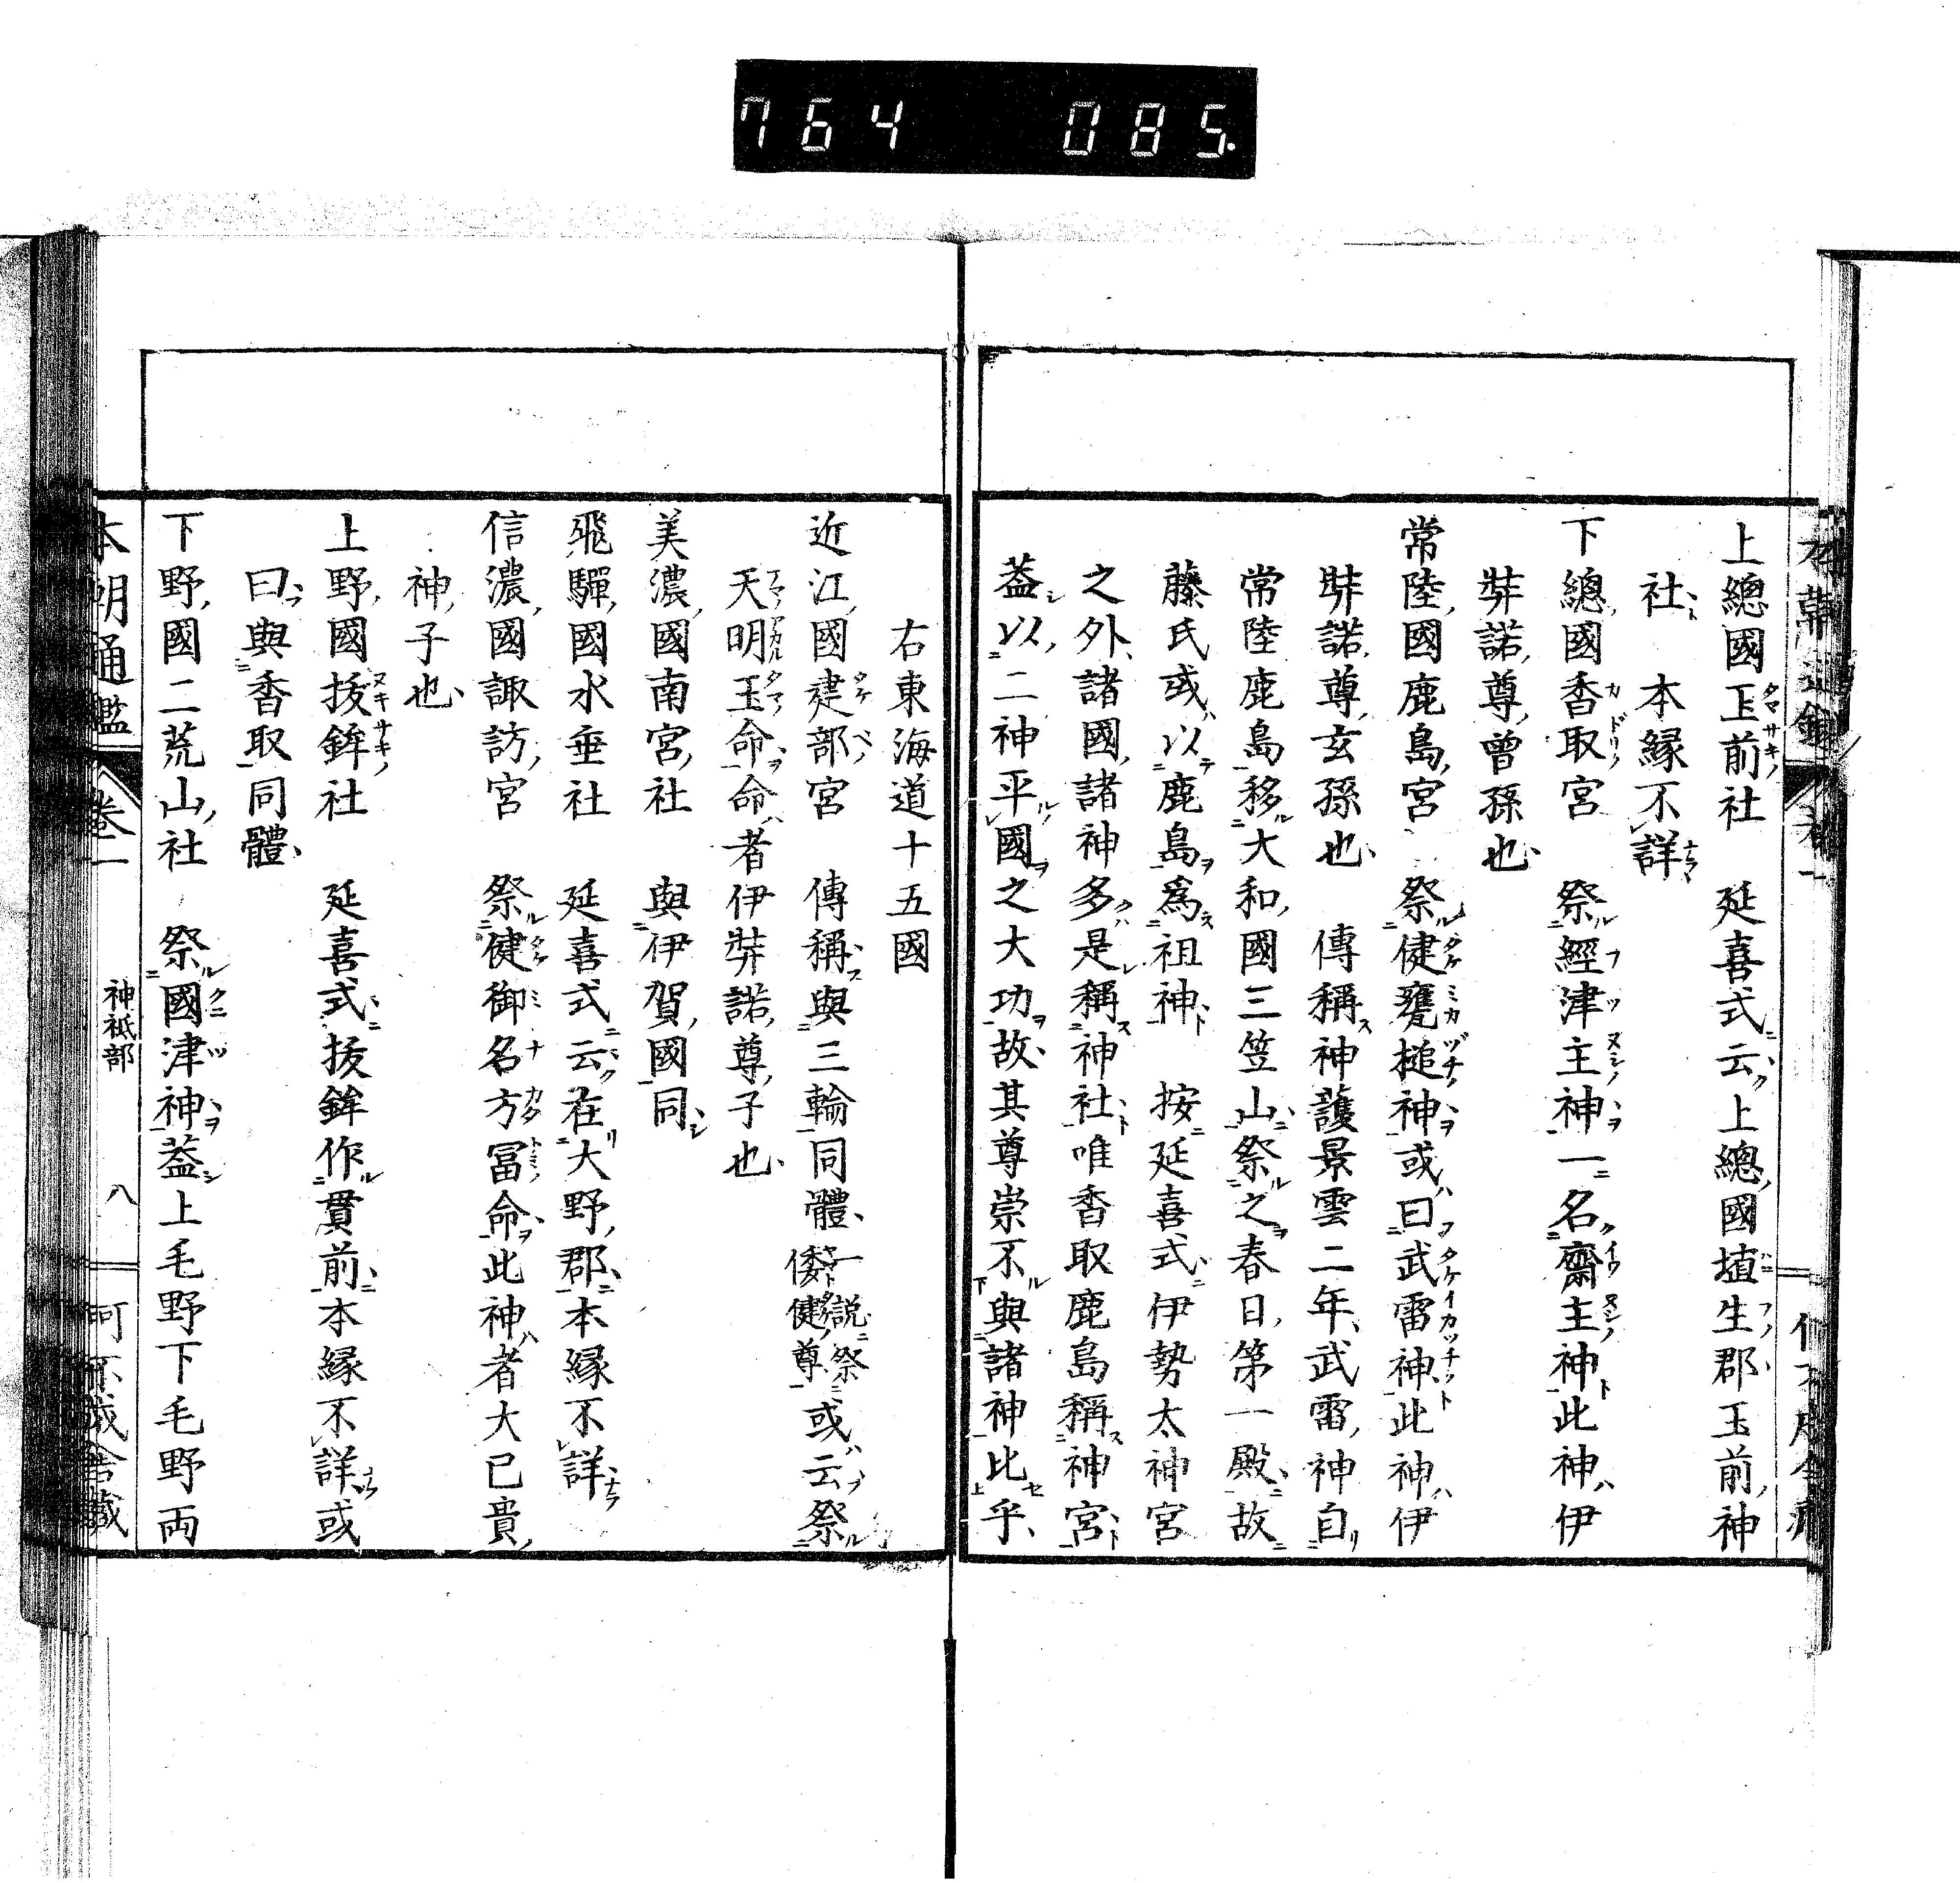 764 085.
上總國玉前社　延喜式云上總國埴生郡玉前神
社　本縁不詳
下總國香取宮　祭經津主神一名齋主神此神伊
弉諾尊曾孫也
常陸國鹿島宮　祭健甕槌神或曰武雷神此神伊
弉諾尊玄孫也　傳稱神護景雲二年武雷神自
常陸鹿島移大和國三笠山祭之春日第一殿故
藤氏或以鹿島爲祖神　按延喜式伊勢太神宮
之外諸國諸神多是稱神社唯香取鹿島稱神宮
蓋以二神平國之大功故其尊崇不與諸神比乎
右東海道十五國
近江國建部宮　傳稱與三輪同體一説祭倭健尊或云祭
天明玉命命者伊弉諾尊子也
美濃國南宮社　與伊賀國同
飛驒國水垂社　延喜式云在大野郡本縁不詳
信濃國諏訪宮　祭健御名方冨命此神者大已貴
神子也
上野國拔鉾社　延喜式拔鉾作貫前本縁不詳或
曰與香取同體
下野國二荒山社　祭國津神蓋上毛野下毛野両
本朝通鑑　卷二　神祇部　八